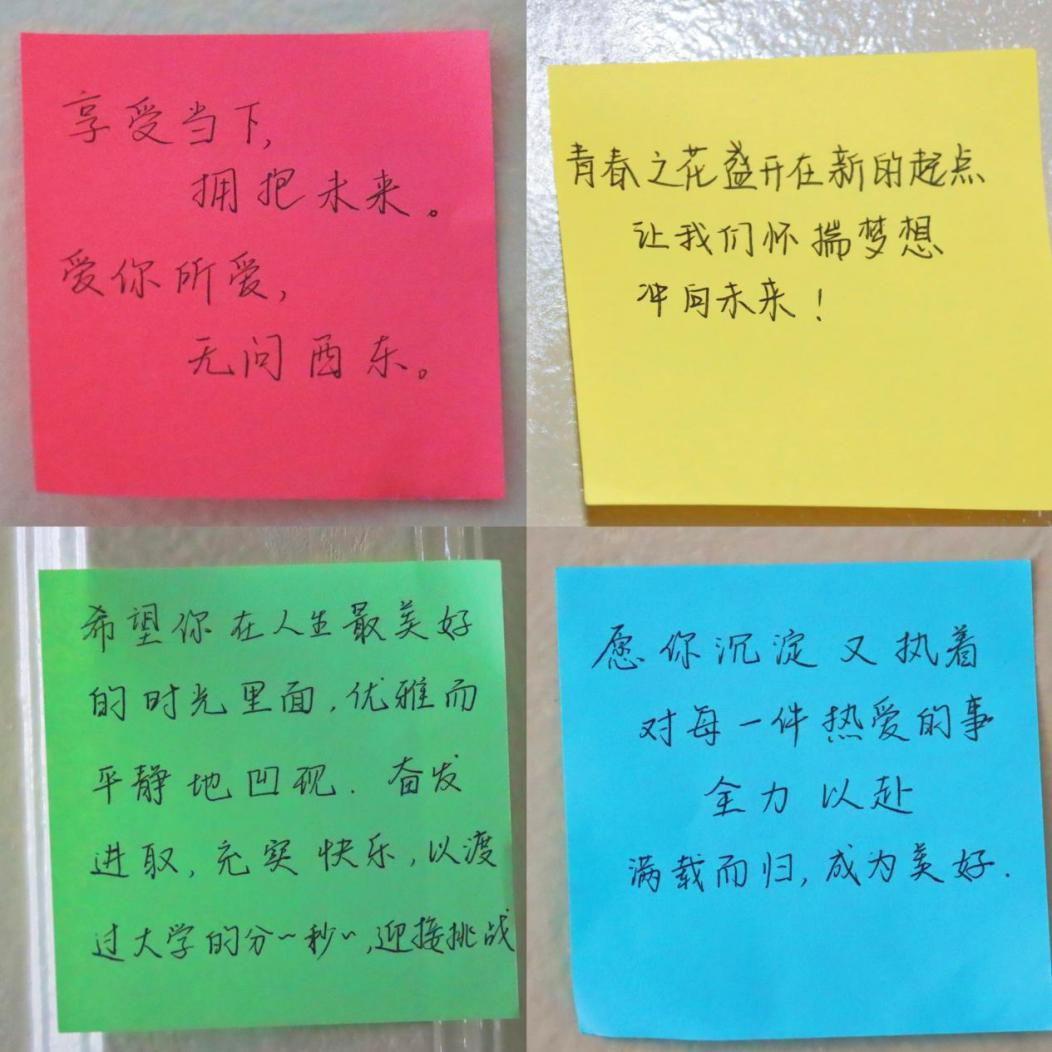 享受当下,
拥抱未来。
爱你所爱,
无问西东。
青春之花盛开在新的起点
让我们怀揣梦想
冲向未来!
希望你在人生最美好
的时光里面,优雅而
平静地凹现.奋发
进取,充实快乐,以渡
过大学的分~秒~,迎接挑战
愿你沉淀又执着
对每一件热爱的事
全力以赴
满载而归,成为美好.